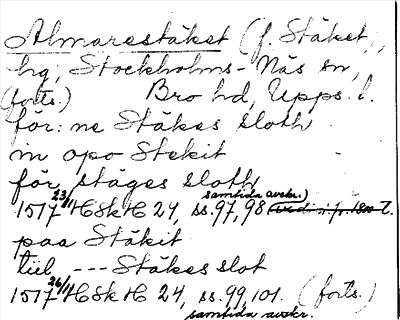 Almarestäket (f. Stäket),
hg, Stockholms-Näs sn,
(forts.) Bro hd, Upps. l.
för: ne Stäkes sloth
in opo Stekit
för stäges sloth
samtida avskr.)
1517 23/11 HSkH 24, ss. 97, 98
paa Stäkit
tiil --- Stäkes slot
1517 26/11 HSkH 24, ss. 99, 101. (forts.)
samtida avskr.